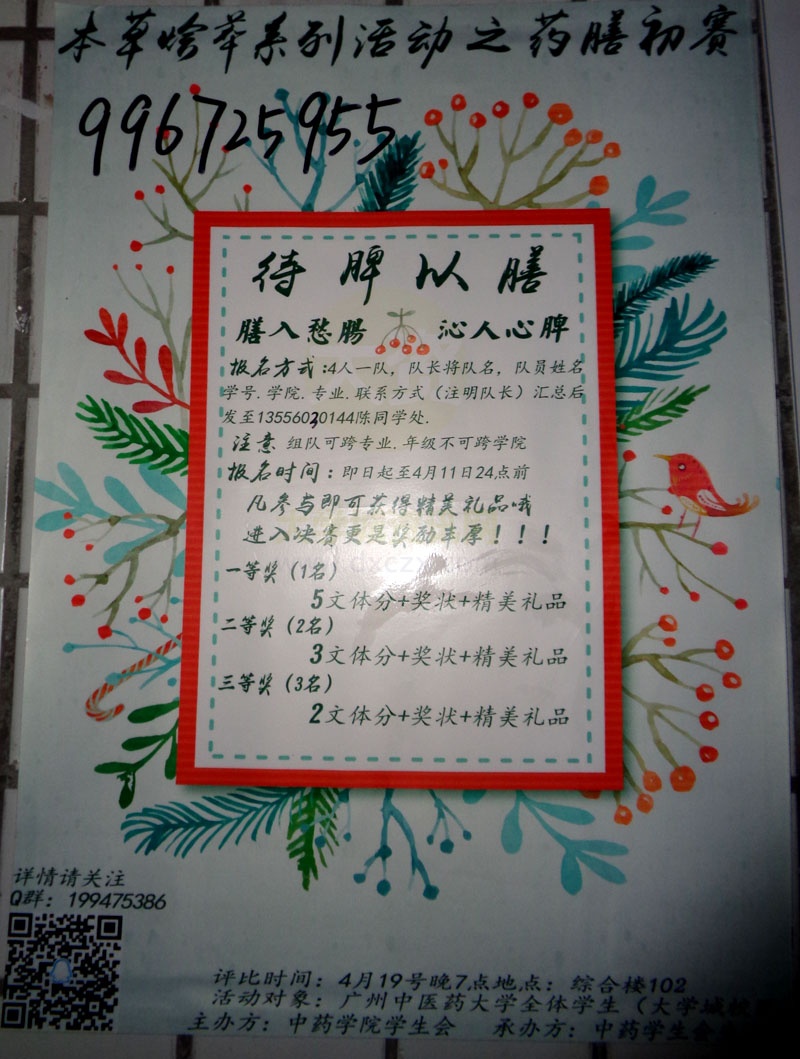 本草烩萃系列活动之药膳初赛
996725955
待脾以膳
膳入愁肠 沁人心脾
报名方式:4人一队，队长将队名，队员姓名
学号.学院.专业.联系方式（注明队长）汇总后
发至13556030144陈同学处.
注意 组队可跨专业.年级不可跨学院
报名时间：即日起至4月11日24点前
凡参与即可获得精美礼品哦
进入决赛更是奖励丰厚！！！
一等奖（1名）
5文体分+奖状+精美礼品
二等奖（2名）
3文体分+奖状+精美礼品
三等奖（3名）
2文体分+奖状+精美礼品
详情请关注
Q群：199475386
评比时间：4月19号晚7点地点：综合楼102
活动对象：广州中医药大学全体学生（大学城校
主办方：中药学院学生会 承办方：中药学生会